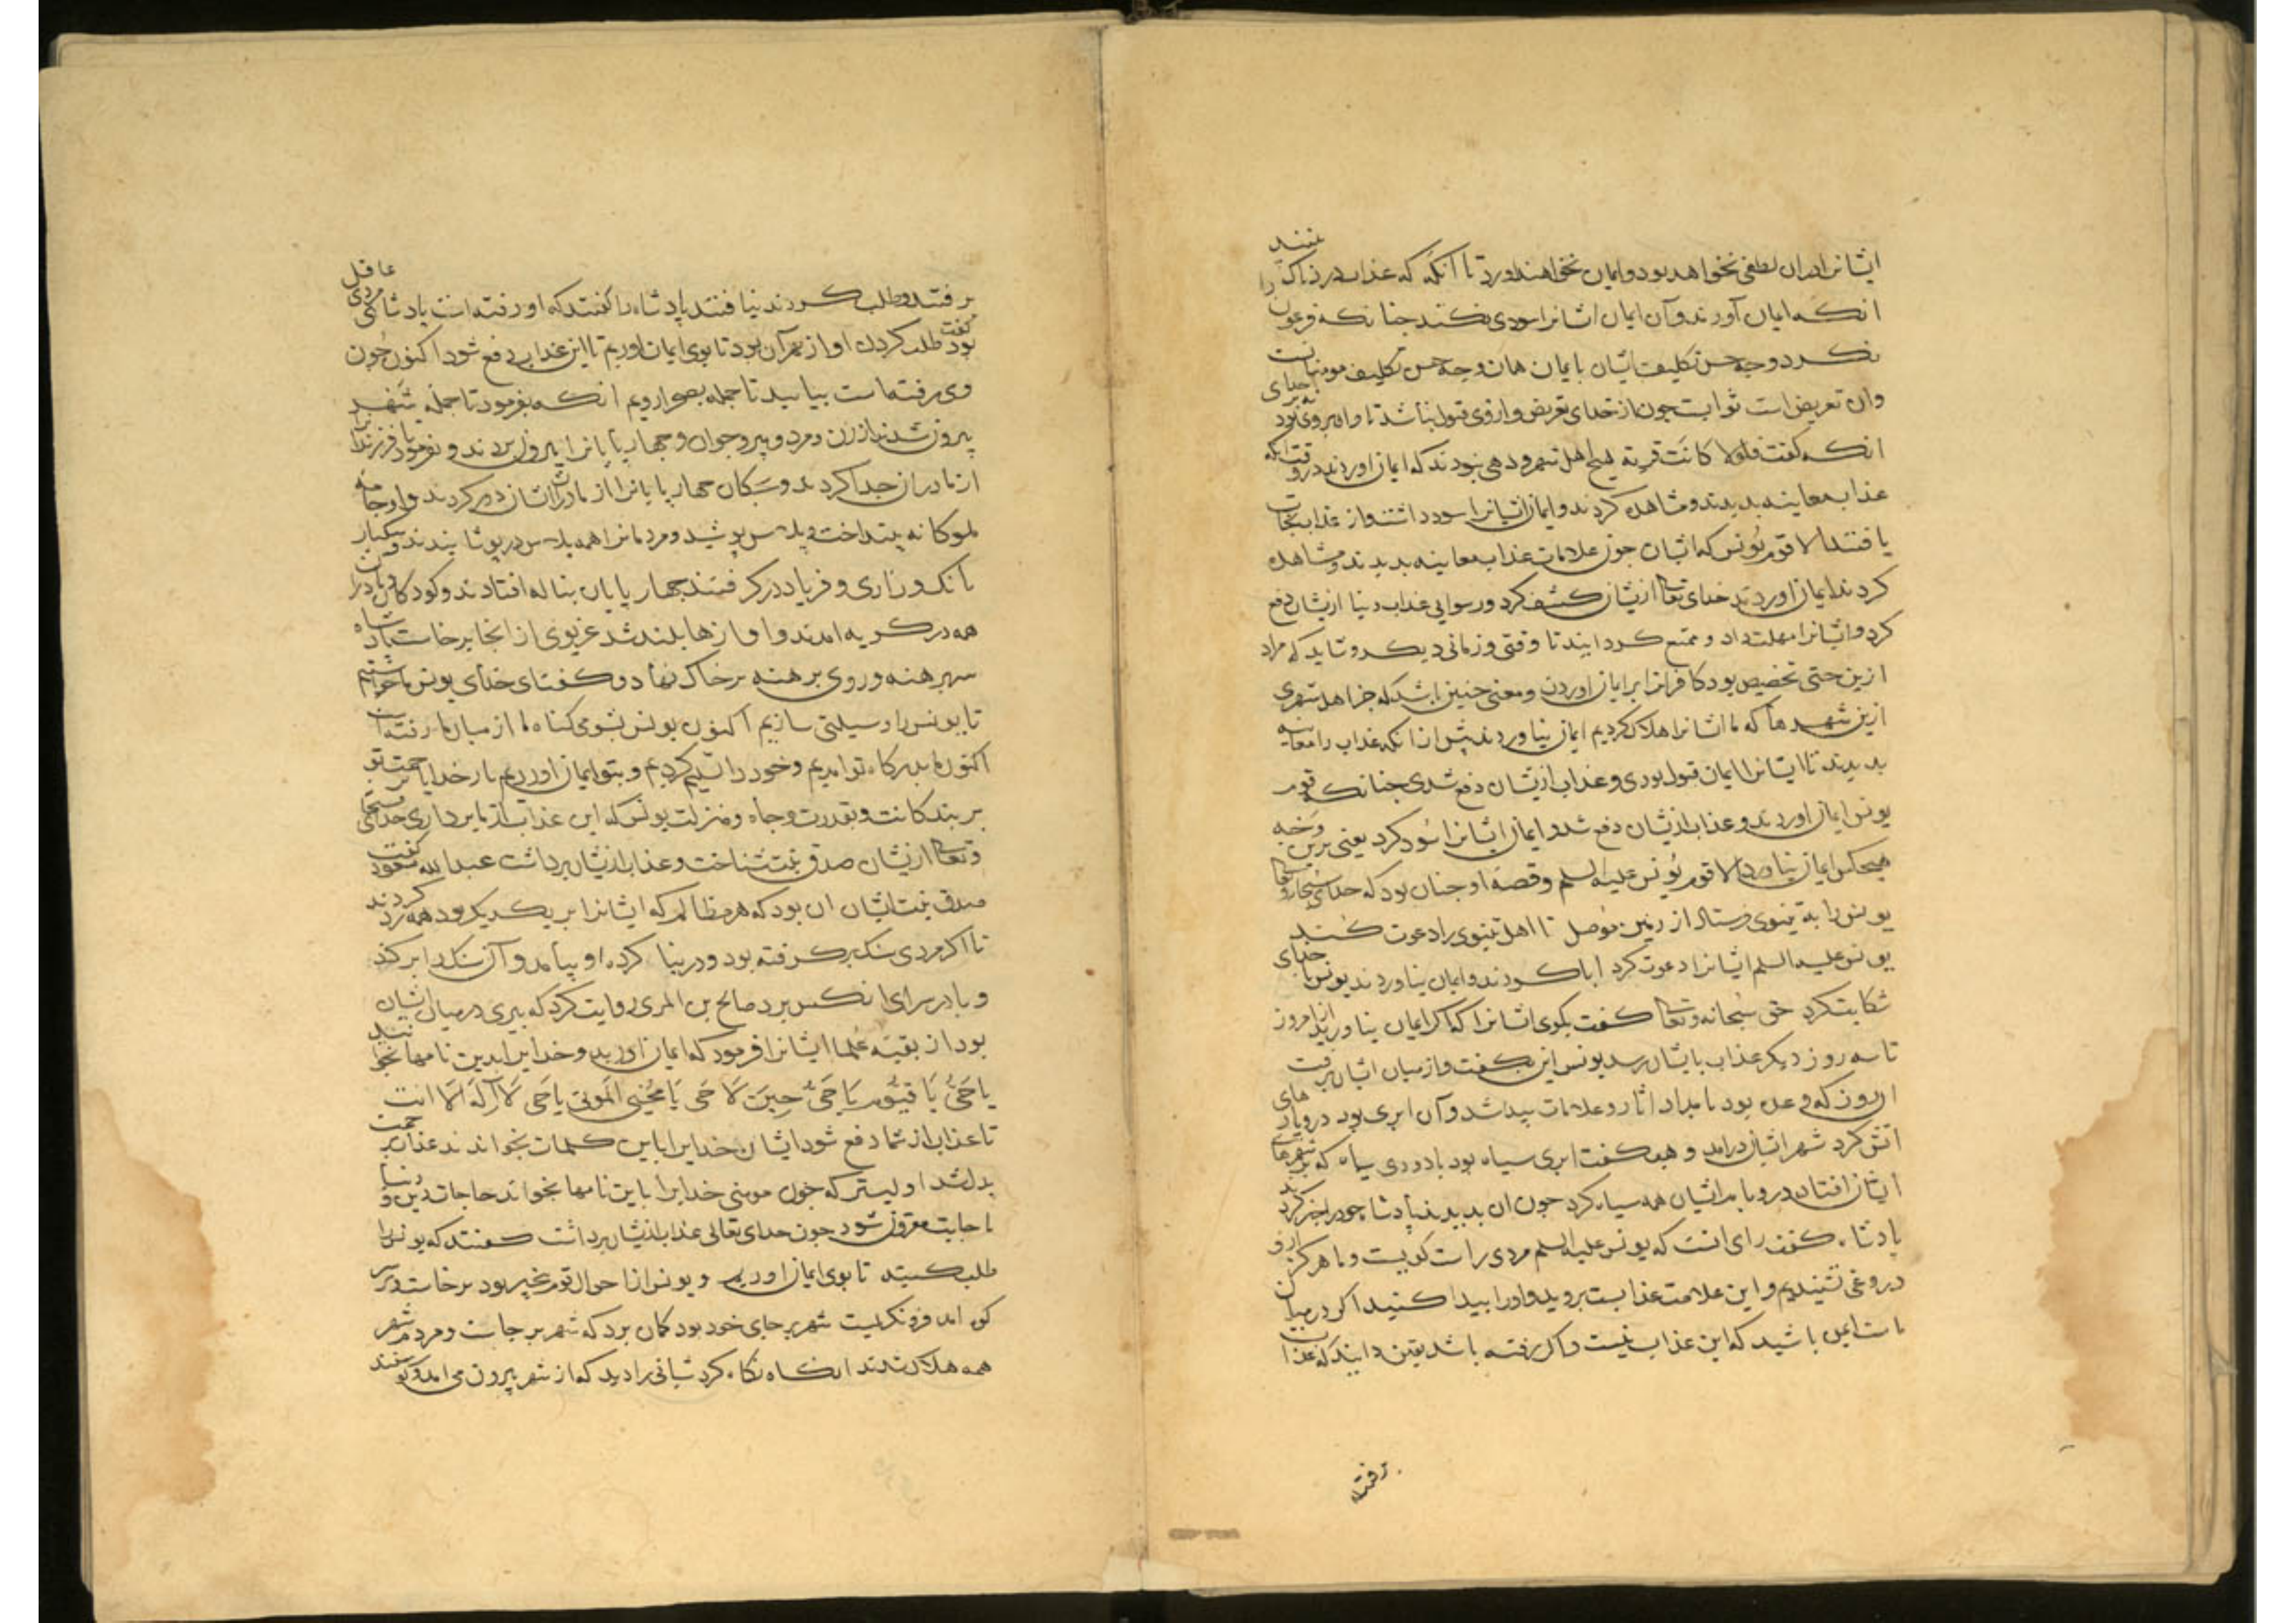 ایشانرا دران لطفی نخواهد بود و ایمان نخواهند اورد تا انکه که عذاب دردناک را بینند
انکه ایمان آورند و آن ایمان ایشانرا سودی نکند چنانکه فرعون
نکرد و وجه حسن تکلیف ایشان بایمان همان وجه حسن تکلیف مومنانست
وان تعریض است ثوابست چون از خدای تعریض و ازوی قبول نباشد تاوان بروی بود
انکه گفت فلولا کانت قریة هیچ اهل شهر و دهی نبودند که ایمان اوردند در وقت انکه
عذاب معاینه بدیدند و مشاهده کردند و ایمان ایشانرا سود داشت و از عذاب نجات
یافتند الا قوم یونس که ایشان چون علامات عذاب معاینه بدیدند و مشاهده
کردند ایمان اوردند خدای تعالی ازیشان کشف کرد و رسوایی عذاب دنیا ازیشان دفع
کرد و ایشانرا مهلت داد و ممتع کردانید تا وقتی و زمانی دیکر و شاید که مراد
ازین حتی تخصیص بود کافرانرا بر ایمان اوردن و معنی چنین باشد که چرا اهل شهری
ازین شهرها که ما ایشانرا هلاک کردیم ایمان نیاوردند پیش از انکه عذاب را معاینه
بدیدند تا ایشانرا ایمان قبول بودی و عذاب ازیشان دفع شدی چنانکه قوم
یونس ایمان اوردند و عذاب ازیشان دفع شد و ایمان ایشانرا سود کرد یعنی برین وجه
هیچکس ایمان نیاورد الا قوم یونس علیه السلم و قصه او چنان بود که خدای سبحانه و تعالی
یونس را به نینوی فرستاد از زمین موصل تا اهل نینوی را دعوت کند
یونس علیه السلم ایشانرا دعوت کرد ابا کردند و ایمان نیاوردند یونس با خدای
شکایت کرد حق سبحانه و تعالی گفت بگوی ایشانرا که اگر ایمان نیاورید از امروز
تا سه روز دیکر عذاب بایشان رسد یونس این بگفت و از میان ایشان برفت
ان روز که وعده بود بامداد اثار و علامات پیدا شد و آن ابری بود در و پاره‌های
آتش کرد شهر ایشان درامد و هب گفت ابری سیاه بود با دودی سیاه که بر شهرهای
ایشان افتاد در و بام ایشان همه سیاه کرد چون ان بدیدند پادشاه خود را خبر کردند
پادشاه گفت رای انست که یونس علیه السلم مردی راست گویست و ما هرگز ازو
دروغی نشنیدیم و این علامت عذابست بروید و او را پیدا کنید اگر در میان
ماست ایمن باشید که این عذاب نیست و اگر رفته باشد یقین دانید که عذاب
برفتند
برفتند و طلب کردند نیافتند پادشاه را گفتند که او رفته است پادشاه مردی عاقل
بود گفت طلب کردن او از بهر آن بود تا بوی ایمان اوریم تا این عذاب دفع شود اکنون چون
وی رفته است بیایید تا جمله بصحرا رویم انکه بفرمود تا جمله شهر
بیرون شدند از زن و مرد و پیر و جوان و چهارپایانرا بیرون بردند و بفرمود تا فرزندانرا
از مادران جدا کردند و بچگان چهارپایانرا از مادران ایشان دور کردند و او جامه
ملوکانه بینداخت و پلاس پوشید و مردمانرا همه پلاس در پوشانیدند و بیکبار
بانک و زاری و فریاد در گرفتند چهارپایان بناله افتادند و کودکان و مادران
همه در گریه امدند و اوازها بلند شد غریوی از انجا برخاست پادشاه
سر برهنه و روی برهنه بر خاک نهاد و گفت ای خدای یونس ما خواستیم
تا یونس را وسیلتی سازیم اکنون یونس بشومی گناه ما از میان ما رفته است
اکنون ما بدرگاه تو امدیم و خود را تسلیم کردیم و بتو ایمان اوردیم بار خدایا برحمت تو
بر بندکانت و بقدرت و جاه و منزلت یونس که این عذاب از ما برداری خدای سبحانه
و تعالی ازیشان صدق نیت شناخت و عذاب ازیشان برداشت عبدالله مسعود گفت
صدق نیت ایشان ان بود که هر مظالم که ایشانرا بر یکدیگر بود همه رد کردند
تا اگر مردی سنگی برگرفته بود و در بنا کرده او بیامد و آن سنگ را برکند
و با در سرای انکس برد صالح بن المری روایت کرد که پیری در میان ایشان
بود از بقیه علما ایشانرا فرمود که ایمان اورید و خدایرا بدین نامها بخوانید
یا حی یا قیوم یا حی حین لا حی یا محیی الموتی یا حی لا اله الا انت
تا عذاب از شما دفع شود ایشان خدایرا باین کلمات بخواندند عذاب برحمت
بدل شد او لیستر که چون مومنی خدایرا باین نامها بخواند حاجات دین و دنیا
باجابت مقرون شود چون خدای تعالی عذاب ازیشان برداشت گفتند که یونس را
طلب کنید تا بوی ایمان اوریم و یونس از احوال قوم بیخبر بود برخاست و بر سر
کوه امد فرو نگریست شهر بر جای خود بود گمان برد که شهر بر جاست و مردم شهر
همه هلاک شدند انگاه نگاه کرد شبانی را دید که از شهر بیرون می امد و گوسفند